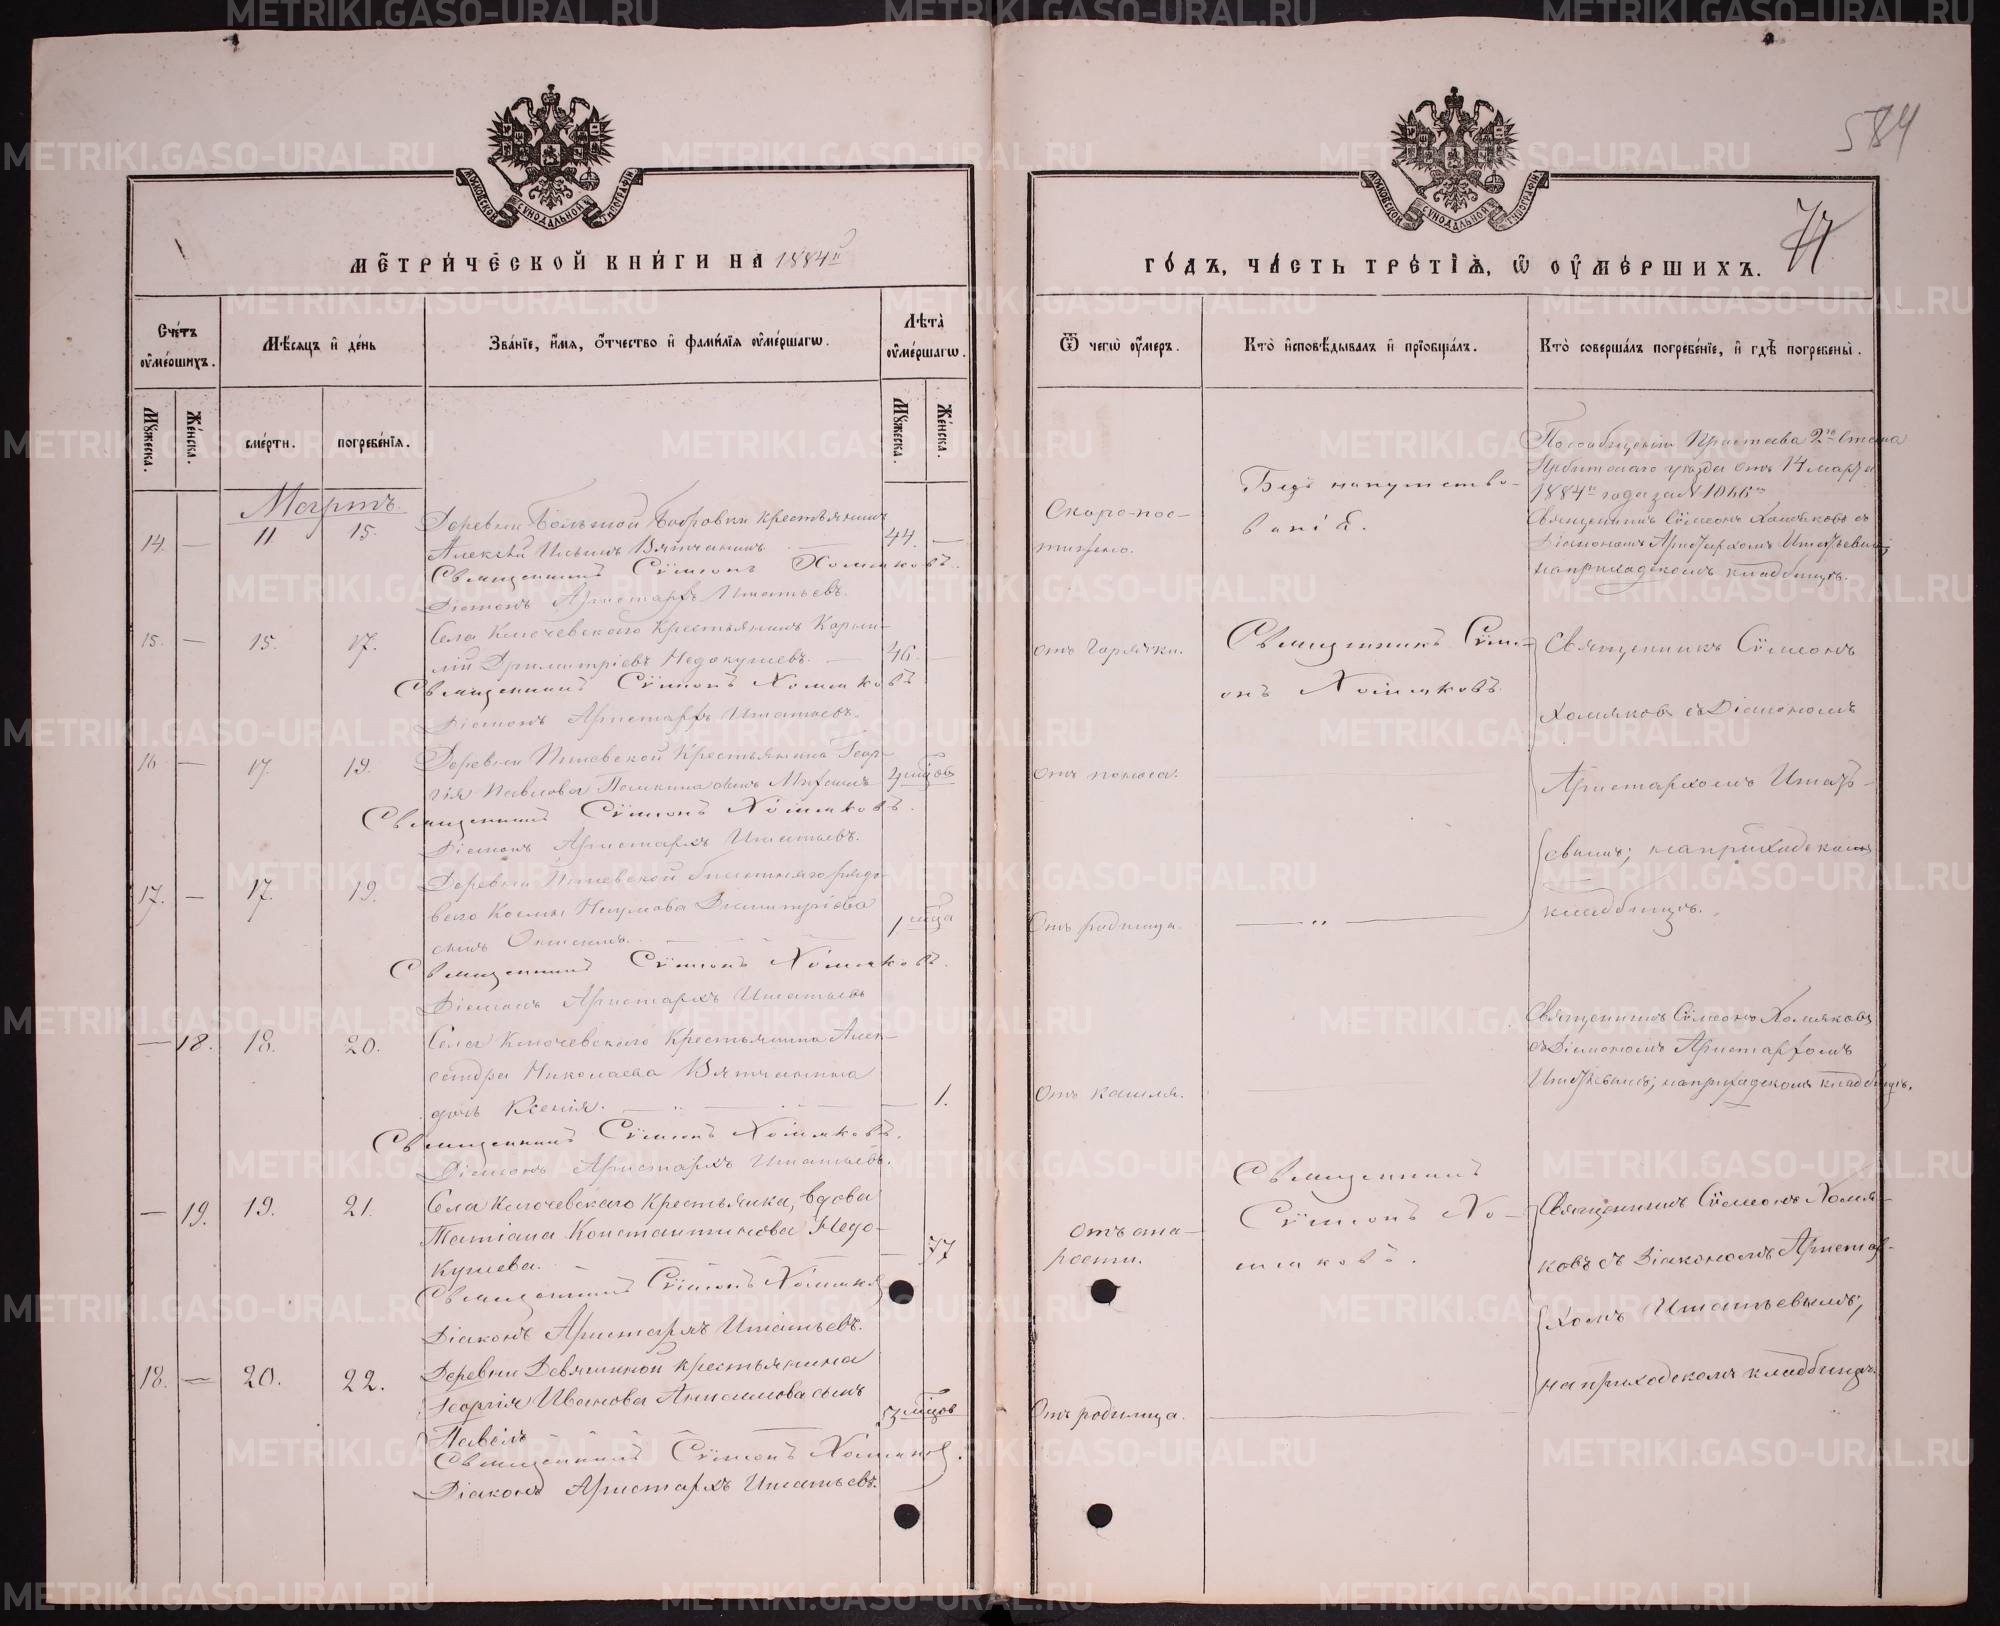 584
77
МОСКОВСКОЙ СУНОДАЛЬНОЙ ТИПОГРАФІИ
МОСКОВСКОЙ СУНОДАЛЬНОЙ ТИПОГРАФІИ
МЕТРИЧЕСКОЙ КНИГИ НА 1884й
ГОДЪ, ЧАСТЬ ТРЕТІЯ, Ѡ ОУМЕРШИХЪ.
Счетъ оумершихъ.
Мѣсяцъ и день
Званіе, имя, отчество и фамилія оумершагѡ.
Лѣта оумершагѡ.
Ѿ чегѡ оумеръ.
Кто исповѣдывалъ и пріобщалъ.
Кто совершалъ погребеніе, и гдѣ погребены.
Мужеска.
Женска.
смерти.
погребенія.
Мужеска.
Женска.
Мартъ.
14. — 11 15.
Деревни Большой Бобровки крестьянинъ
Алексѣй Ильинъ Вятчанинъ. 44. —
Священникъ Сѵмеонъ Хомяковъ.
Діаконъ Аристархъ Игнатьевъ.
Скоро-пос-
тижно.
Безъ напутство-
ванія.
По сообщенію Пристава 2го Стана
Ирбитскаго уѣзда отъ 14 марта
1884го года за № 1066м
Священникъ Сѵмеонъ Хомяковъ съ
Діакономъ Аристархомъ Игнатьевымъ;
на приходскомъ кладбищѣ.
15. — 15. 17.
Села Ключевскаго крестьянинъ Корни-
лій Димитріевъ Недокушевъ. — 46. —
Священникъ Сѵмеонъ Хомяковъ
Діаконъ Аристархъ Игнатьевъ.
отъ горячки.
Священникъ Сѵме-
онъ Хомяковъ.
Священникъ Сѵмеонъ
Хомяковъ съ Діакономъ
Аристархомъ Игнать-
евымъ; на приходскомъ
кладбищѣ.
16. — 17. 19.
Деревни крестьянина Геор-
гія Павлова сынъ
Священникъ Сѵмеонъ Хомяковъ.
Діаконъ Аристархъ Игнатьевъ.
отъ поноса.
17. — 17. 19.
Деревни
Наумова Димитріева
сынъ 1 мѣсяца
Священникъ Сѵмеонъ Хомяковъ.
Діаконъ Аристархъ Игнатьевъ
Отъ родимца.
— „ —
— 18. 18. 20.
Села Ключевскаго крестьянина Алек-
сандра Николаева Вятчанина
дочь Ксенія. — 1.
Священникъ Сѵмеонъ Хомяковъ.
Діаконъ Аристархъ Игнатьевъ.
Отъ кашля.
Священникъ Сѵмеонъ Хомяковъ
съ Діакономъ Аристархомъ
Игнатьевымъ; на приходскомъ кладбищѣ.
— 19. 19. 21.
Села Ключевскаго крестьянка, вдова
Татіана Константинова Недо-
кушева. — 77
Священникъ Сѵмеонъ Хомяковъ
Діаконъ Аристархъ Игнатьевъ.
отъ ста-
рости.
Священникъ
Сѵмеонъ Хо-
мяковъ.
Священникъ Сѵмеонъ Хомя-
ковъ съ Діакономъ Аристар-
хомъ Игнатьевымъ;
на приходскомъ кладбищѣ.
18. — 20. 22.
Деревни Девяшиной крестьянина
Георгія Иванова Анисимова сынъ
Павелъ 5 мѣсяцовъ
Священникъ Сѵмеонъ Хомяковъ.
Діаконъ Аристархъ Игнатьевъ.
Отъ родимца.
METRIKI.GASO-URAL.RU